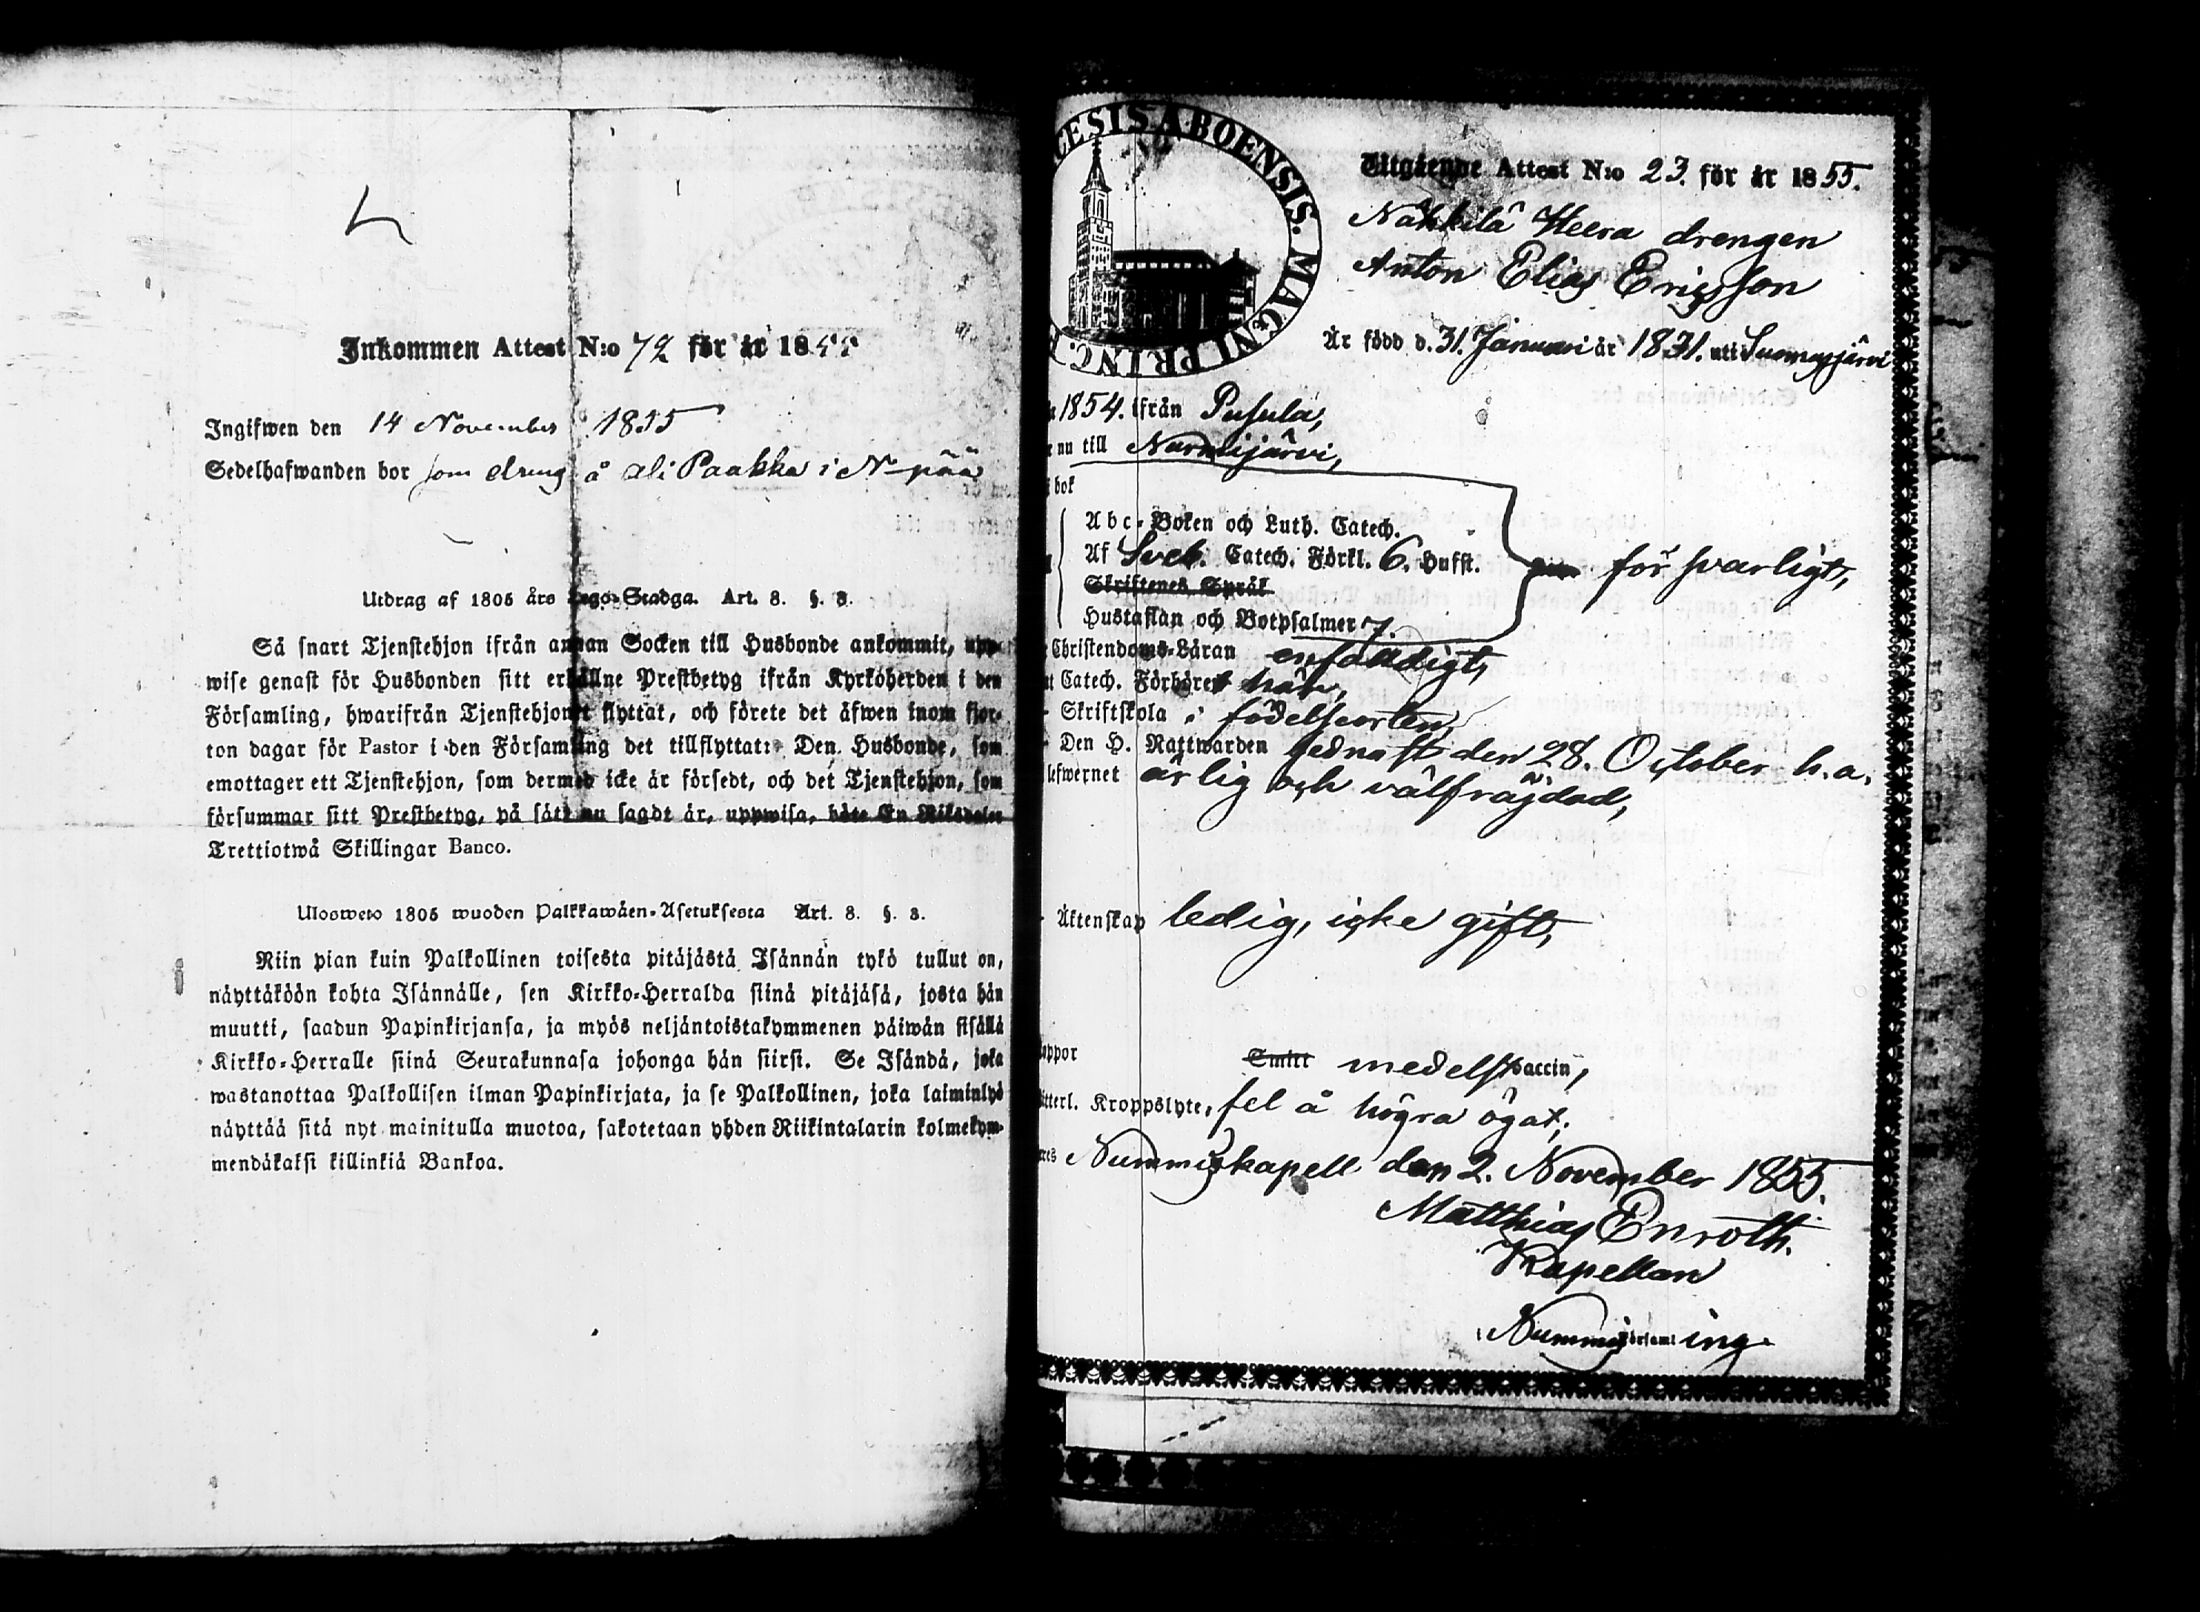 Inkommen Attest N:o 72 för år 1855
Ingifwen den 14 November 1855
Sedelhafwanden bor som dreng å ali Paakka i N-pää
Utdrag af 1805 års Lego-Stadga. Art. 8. §. 3.
Så snart Tjenstehjon ifrån annan Socken till Husbonde ankommit, upp-
wise genast för Husbonden sitt erhållne Prestbetyg ifrån Kyrkoherden i den
Församling, hwarifrån Tjenstehjonet flyttat, och förete det äfwen inom fjor-
ton dagar för Pastor i den Församling det tillflyttat: Den Husbonde, som
emottager ett Tjenstehjon, som dermed icke är försedt, och det Tjenstehjon, som
försummar sitt Prestbetyg, på sätt nu sagdt är, uppwisa, böte En Riksdaler
Trettiotwå Skillingar Banco.
Ulosweto 1805 wuoden Palkkawäen-Asetuksesta Art. 8. §. 3.
Niin pian kuin Palkollinen toisesta pitäjästä Isännän tykö tullut on,
näyttäköön kohta Isännälle, sen Kirkko-Herralda siinä pitäjäsä, josta hän
muutti, saadun Papinkirjansa, ja myös neljäntoistakymmenen päiwän sisällä
Kirkko-Herralle siinä Seurakunnasa johonga hän siirsi. Se Isändä, joka
wastanottaa Palkollisen ilman Papinkirjata, ja se Palkollinen, joka laiminlyö
näyttää sitä nyt mainitulla muotoa, sakotetaan yhden Riikintalarin kolmekym-
mendäkaksi killinkiä Bankoa.
CESIS ABOENSIS. MAGNI PRINC.
Utgående Attest N:o 23. för år 1855.
Nähkilä Heera drengen
Anton Elias Ericsson
Är född d. 31. Januari år 1831. uti Suomusjärvi
1854. ifrån Pusula,
nu till Nurmijärvi,
bok
Abc-Boken och Luth. Catech.
Af Sveb. Catech. Förkl. 6. Hufst.
försvarligt,
Skriftenes Språk
Hustaflan och Botpsalmer 7.
Christendoms-Läran enfaldigt,
Catech. Förhöret här,
Skriftskola i födelseorten,
Den H. Nattwarden sednast den 28. October h.a.
lefwernet ärlig och välfräjdad,
Äktenskap ledig, icke gift,
koppor Smitt medelst vaccin,
ytterl. Kroppslyte, fel å högra ögat;
Nummis kapell den 2. November 1855.
Matthias Enroth.
Kapellan
i Nummis församling.